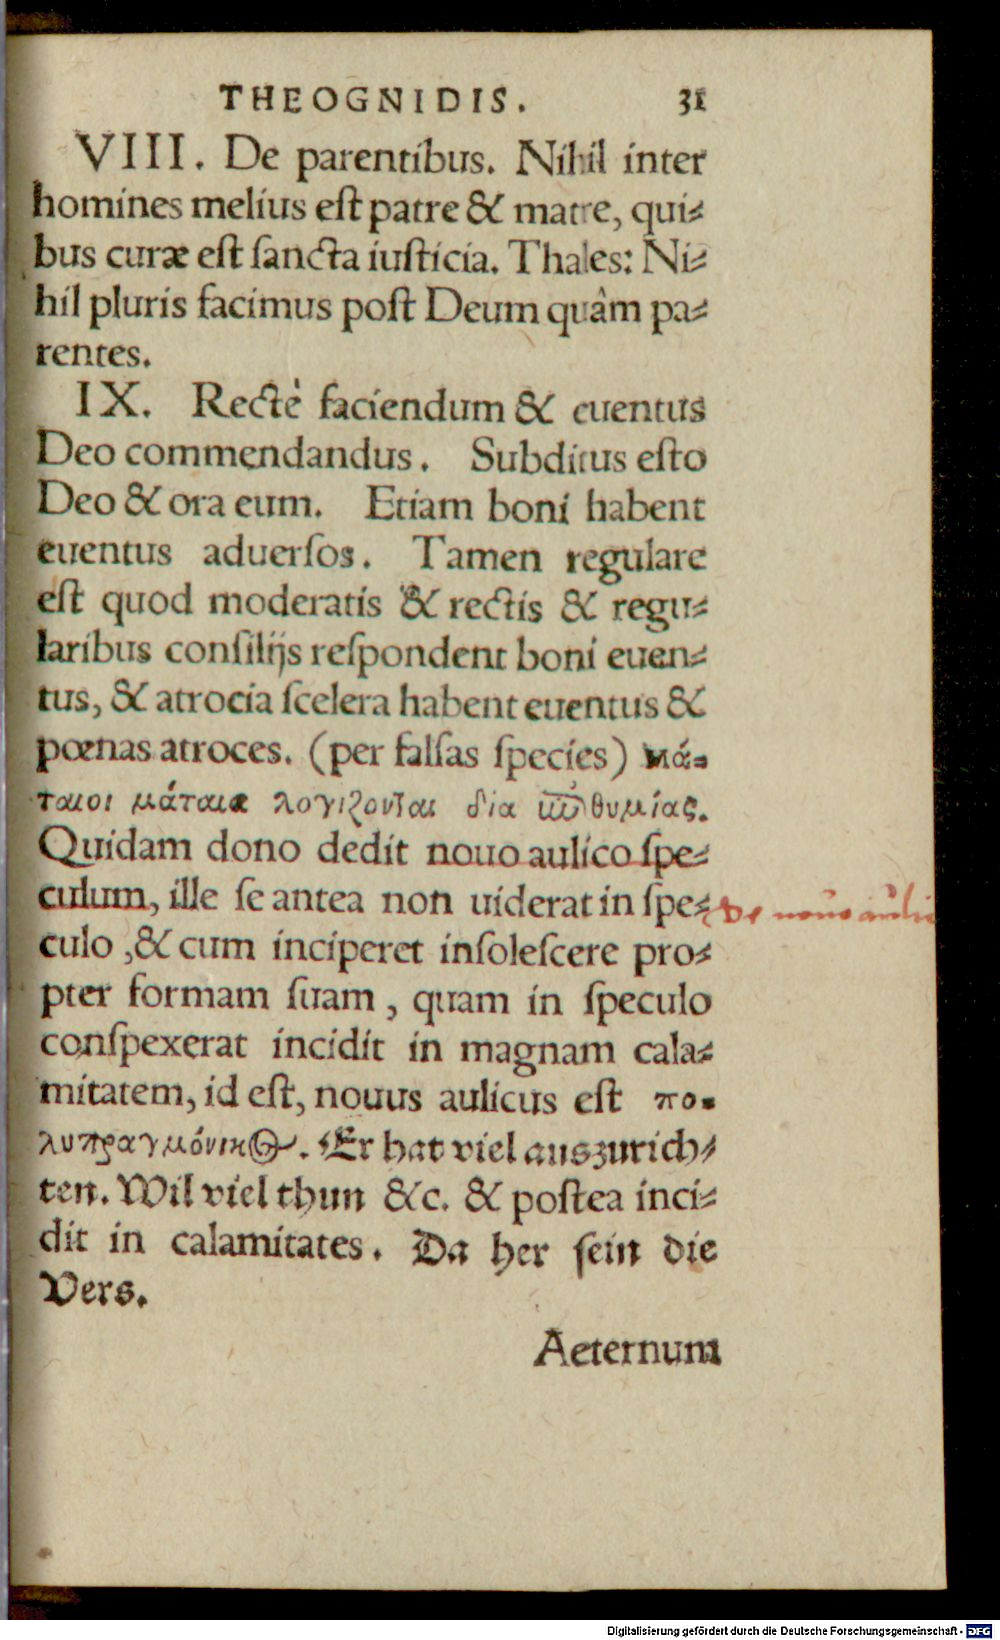 THEOGNIDIS. 31
VIII. De parentibus. Nihil inter
homines melius eſt patre & matre, qui⸗
bus curæ eſt ſancta iuſticia. Thales: Ni⸗
hil pluris facimus poſt Deum quâm pa⸗
rentes.
IX. Rectè faciendum & euentus
Deo commendandus. Subditus eſto
Deo & ora eum. Etiam boni habent
euentus aduerſos. Tamen regulare
eſt quod moderatis & rectis & regu⸗
laribus conſilijs reſpondent boni euen⸗
tus, & atrocia ſcelera habent euentus &
pœnas atroces. (per falſas ſpecies) μά⸗
ταιοι μάταια λογιζονται δια ἐπιθυμίας.
Quidam dono dedit nouo aulico ſpe⸗
culum, ille ſe antea non uiderat in ſpe⸗
De nouo aulic
culo, & cum inciperet inſoleſcere pro⸗
pter formam ſuam, quam in ſpeculo
conſpexerat incidit in magnam cala⸗
mitatem, id eſt, nouus aulicus eſt πο⸗
λυπραγμόνικος. Er hat viel auszurich⸗
ten. Wil viel thun &c. & poſtea inci⸗
dit in calamitates. Da her ſein die
Vers.
Aeternum
Digitalisierung gefördert durch die Deutsche Forschungsgemeinschaft - DFG